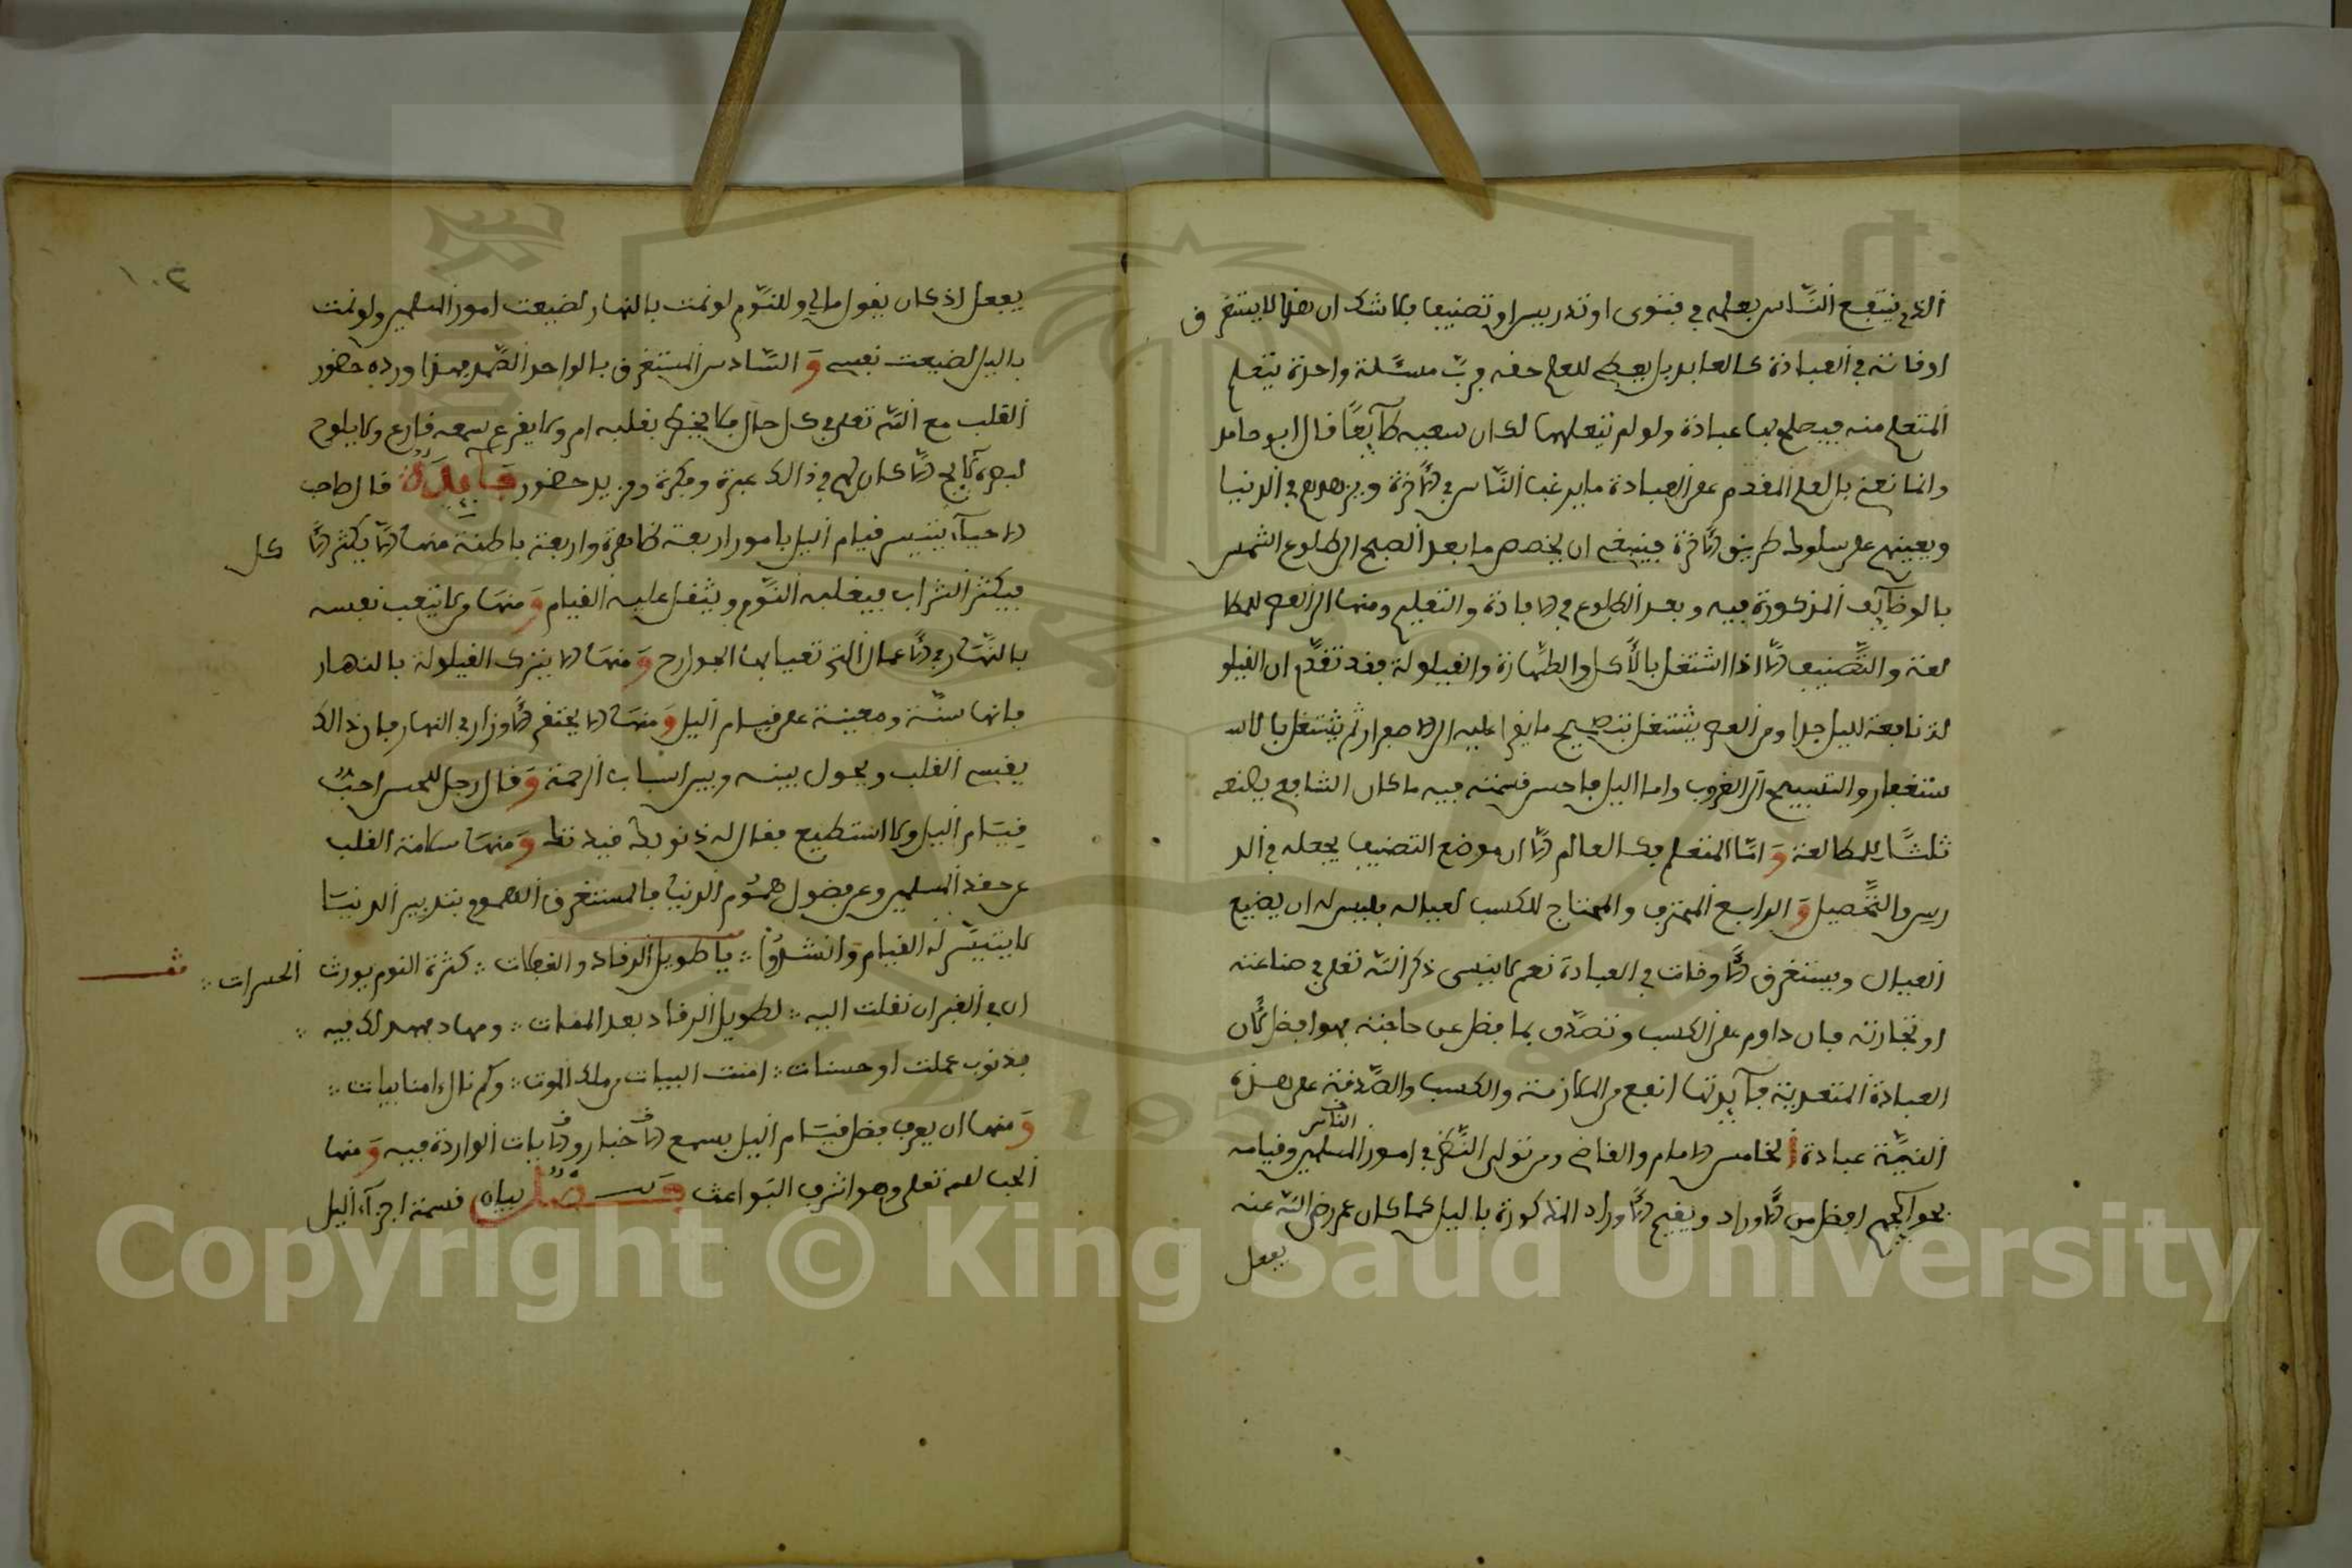 الذي ينتفع الناس بعلمه في فتوى او تدريس او تصنيف فلا شك ان هذا لا يستغرق
اوقاته في العبادة كالعابد بل يعطي للعلم حقه فرب مسئلة واحدة يتعلم
المتعلم منه فيصلح بها عبادة ولو لم يتعلمها لكان سعيه ضآيعًا قال ابو حامد
وانما نعني بالعلم المقدم على العبادة ما يرغب الناس في الاخرة ويزهدهم في الدنيا
ويعينهم على سلوك طريق الاخرة فينبغي ان يخصص ما بعد الصبح الى طلوع الشمس
بالوظآيف المذكورة فيه وبعد الطلوع في الافادة والتعليم ومنها الى العصر للمطا
لعة والتصنيف الا اذا اشتغل بالأكل والطهارة والقيلولة فقد تقدم ان القيلو
لة نافعة لليل جدا ومن العصر يشتغل بتصحيح ما يقرا عليه الى الاصفرار ثم يشتغل بالاس
ستغفار والتسبيح الى الغروب واما اليل فاحسن قسمته فيه ما كان الشافعي يصنعه
ثلثًا للمطالعة وَ امّا المتعلم فكالعالم الا ان موضع التصنيف يجعله في الد
رس والتحصيل وَ الرابع المحترف والمحتاج للكسب لعياله فليس له ان يضيع
العيال ويستغرق الاوقات في العبادة نعم لا ينسى ذكر الله تعلى في صناعته
او تجارته فان داوم على الكسب وتصدق بما فضل عن حاجته فهو افضل لان
العبادة المتعدية فآيدتها انفع من اللازمة والكسب والصدقة على هذه
النية عبادة الخامس الامام والقاضي ومن تولى النظر في امور المسلمين وقيامه
الناس
بحوآيجهم افضل من الاوراد ويقيم الاوراد المذكورة بالليل كما كان عمر رضي الله عنه
يفعل
١٠٣
يفعل اذ كان يقول مالي وللنوم لو نمت بالنهار لضيعت امور المسلمين ولو نمت
باليل لضيعت نفسي وَ السادس المستغرق بالواحد الصمد فهذا ورده حضور
القلب مع الله تعلى في كل حال فلا يخطر بقلبه امر ولا يقرع سمعه قارع ولا يلوح
لبصره لآيح الا كان لهم في ذالك عبرة وفكرة ومزيد حضور فآيدة قال صاحب
الاحيآء يتيسر قيام اليل بامور اربعة ظاهرة واربعة باطنة منها الا يكثر الا كل
فيكثر الشراب فيغلبه النوم ويثقل عليه القيام وَ منها ولا يتعب نفسه
بالنهار في الاعمال التي تعيا بها الجوارح وَ منها الا يترك القيلولة بالنهار
فانها سنّة ومعينة على قيام اليل وَ منها الا يحتقب الاوزار في النهار فان ذالك
يقسي القلب ويحول بينه وبين اسباب الرحمة وَ قال رجل للحسن احبّ
قيام اليل ولا استطيع فقال له ذنوبك قيدتك وَ منها سلامة القلب
عن حقد المسلمين وعن فضول هموم الدنيا فالمستغرق الهموم بتدبير الدنيا
لا يتيسر له القيام وانشدوا ؞ يا طويل الرقاد والغفلات ؞ كثرة النوم يورث الحسرات ؞
ان في القبر ان نقلت اليه ؞ لطويل الرقاد بعد الممات ؞ ومهاد يمهد لك فيه ؞
بذنوب عملت او حسنات ؞ امنت البيات من ملك الموت ؞ وكم نال امنا ببيات ؞
وَ منها ان يعرف فضل قيام اليل بسمع الاخبار والايات الواردة فيه وَ منها
الحب لله تعلى وهو اشرف البواعث فصل بيان قسمة اجزآء اليل
Copyright © King Saud University
1957